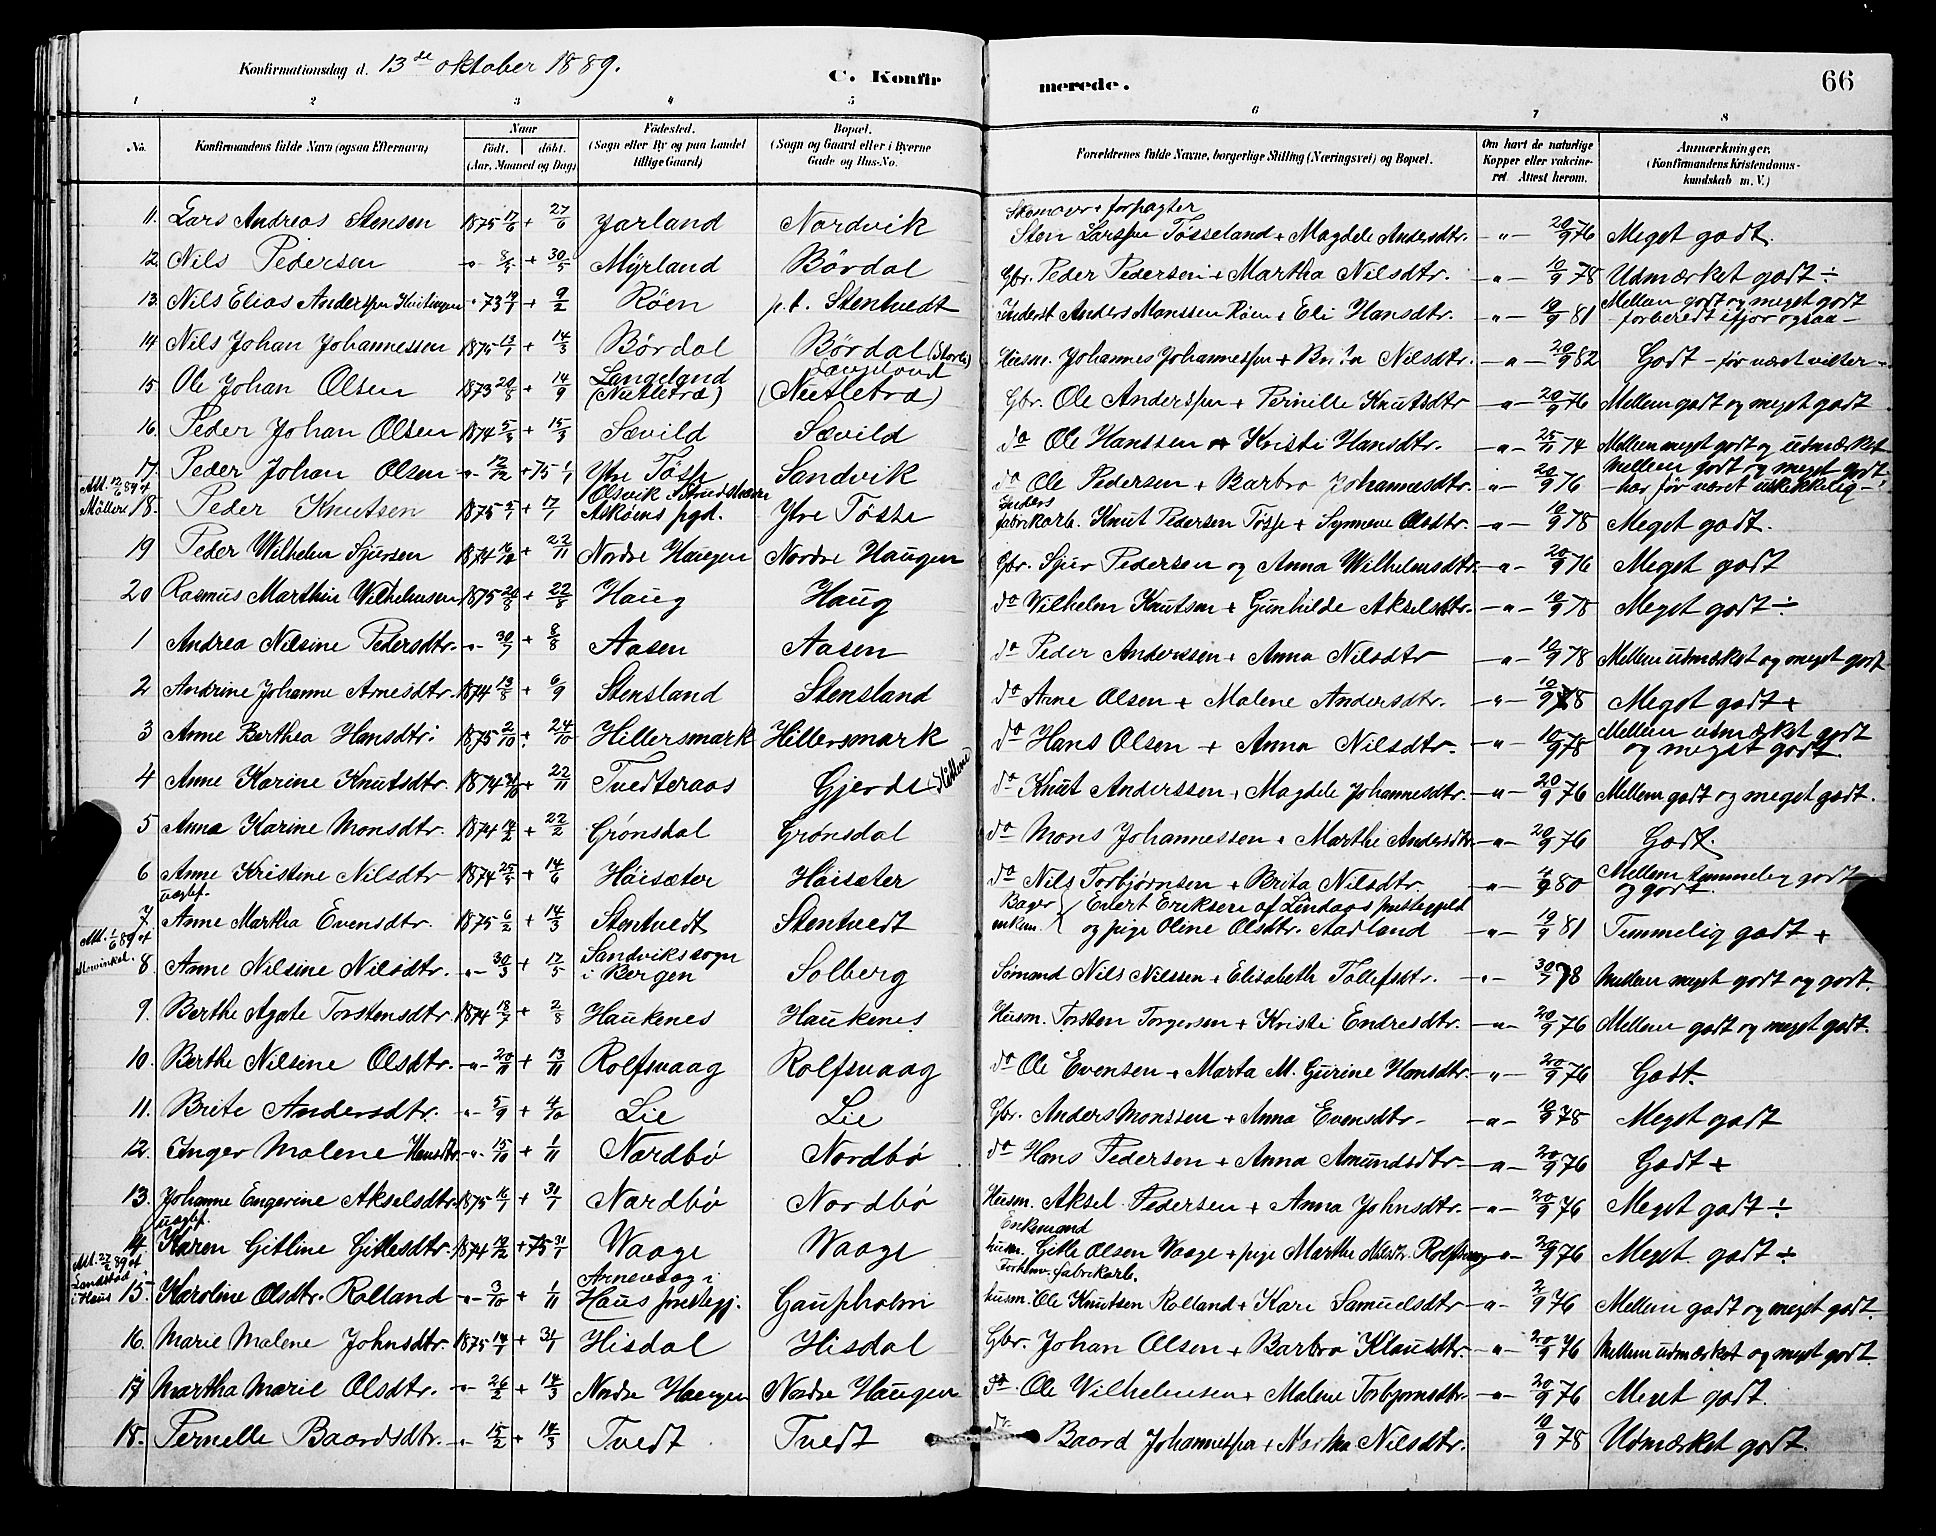 Konfirmationsdag d. 13de oktober 1889. C. Konfirmerede. 66
1 2 3 4 5 6 7 8
No. Konfirmandens fulde Navn (ogsaa Efternavn) Naar født. døbt. (Aar, Maaned og Dag) Fødested. (Sogn eller By og paa Landet tillige Gaard) Bopæl. (Sogn og Gaard eller i Byerne Gade og Hus-No. Forældrenes fulde Navne, borgerlige Stilling (Næringsvei) og Bopæl. Om havt de naturlige Kopper eller vaccineret. Attest herom. Anmærkninger. (Konfirmandens Kristendomskundskab m. V.)
11. Lars Andreas Stensen 1875 17/6 + 27/6 Jarland Nordvik Skomager + forpagter Sten Larssen Tösseland + Magdele Andersdtr. -"- 20/9 76 Meget godt.
12. Nils Pedersen -"- 8/5 + 30/5 Myrland Bördal Gbr. Peder Pedersen + Martha Nilsdtr. -"- 10/9 78 Udmærket godt ÷
13. Nils Elias Anderssen " 73 19/1 + 9/2 Röen p.t. Stentvedt Inderst Anders Monssen Röen + Eli Hansdtr. -"- 10/9 81 Mellem godt og meget godt - forberedt ifjor ogsaa -
14 Nils Johan Johannessen 1875 13/1 + 14/3 Bördal Bördal (Storli) Husm. Johannes Johannessen + Brita Nilsdtr. -"- 20/9 82 Godt - før været
15. Ole Johan Olsen 1873 20/8 + 14/9 Langeland (Nutletræ) Langeland (Nutletræ) Gbr. Ole Anderssen + Pernille Knutsdtr -"- 20/9 76 Mellem godt og meget godt
16. Peder Johan Olsen 1874 5/3 + 15/3 Sævild Sævild do Ole Hanssen + Kristi Hansdtr. -"- 25/11 74 Mellem meget godt og udmærket
17. Peder Johan Olsen -"- 12/12 + 75 1/1 Ytre Tösse Sandvik do Ole Pedersen + Barbro Johannesdtr. -"- 20/9 76 Mellem godt og meget godt - har før været uskikkelig -
Att. 12/6 89 af Möller 18. Peder Knutsen 1875 5/1 + 17/1 Olsvik Askøens pgd. Ytre Tösse Inders fabrikarb. Knut Pedersen Tösse + Synneve Olsdtr. -"- 10/9 78 Meget godt.
19 Peder Wilhelm Sjursen 1874 16/10 + 22/11 Nordre Haugen Nordre Haugen Gbr. Sjur Pedersen og Anna Wilhelmsdtr. -"- 20/9 76 Meget godt
20 Rasmus Marthin Wilhelmsen 1875 20/8 + 22/8 Haug Haug do Wilhelm Knutsen + Gunhilde Akselsdtr. -"- 10/9 78 Meget godt ÷
1 Andrea Nilsine Pedersdtr. -"- 30/7 + 8/8 Aasen Aasen do Peder Anderssen + Anna Nilsdtr -"- 10/9 78 Mellem udmærket og meget godt
2 Andrine Johanne Arnesdtr. 1874 13/8 + 6/9 Stensland Stensland do Arne Olsen + Malene Andersdtr. -"- 10/9 78 Meget godt +
3 Anne Berthea Hansdtr. 1875 2/10 + 24/10 Hillersmark Hillersmark do Hans Olsen + Anna Nilsdtr. -"- 10/9 78 Mellem udmærket godt og meget godt
4 Anne Karine Knutsdtr. 1874 31/10 + 22/11 Tvedteraas Gjerde do Knut Anderssen + Magdele Johannesdtr. -"- 20/9 76 Mellem godt og meget godt.
5 Anna Karine Monsdtr. 1874 14/2 + 22/2 Grönsdal Grönsdal do Mons Johannessen + Marthe Andersdtr -"- 20/9 76 Godt.
6 Anne Kristine Nilsdtr 1874 25/5 + 14/6 Höisæter Höisæter do Nils Torbjørnsen + Brita Nilsdtr. -"- 4/9 80 Mellem temmelig godt og godt.
7 uægtef. Anne Martha Evensdtr. 1875 6/2 + 14/3 Stentvedt Stentvedt Bager enkem. Enert Eriksen af Lindaas prestegjeld og pige Oline Olsdtr. Aadland -"- 10/9 81 Temmelig godt +
Att. 1/6 89 af Mowinkel. 8. Anne Nilsine Nilsdtr. -"- 30/3 + 17/5 Sandvikssogn i Bergen Solberg Sømand Nils Nilssen + Elisabeth Tollefsdtr. -"- 30/7 78 Mellem meget godt og godt.
9. Berthe Agate Torstensdtr. 1874 18/7 + 2/8 Haukenes Haukenes Husm. Torsten Torgersen + Kristi Endresdtr. -"- 20/9 76 Mellem godt og meget godt.
10. Berthe Nilsine Olsdtr. -"- 20/11 + 13/11 Rolfsvaag Rolfsvaag do Ole Evensen + Marta M. Gurine Hansdtr. -"- 20/9 76 Godt.
11. Brite Andersdtr. -"- 5/9 + 4/10 Lie Lie Gbr. Anders Monssen + Anna Evensdtr -"- 10/9 78 Meget godt
12. Inger Malene Hansdtr. -"- 15/10 + 1/11 Nordbö Nordbö do Hans Pedersen + Anna Amundsdtr -"- 20/9 76 Godt +
13. Johanne Engerine Akselsdtr. 1875 16/1 + 31/1 Nordbö Nordbö Husm. Aksel Pedersen + Anna Johnsdtr. -"- 20/9 76 Meget godt ÷
14 uægtef. Karen Gitline Gittesdtr. 1874 12/12 + 75 31/1 Waage Waage Enkemand husm. Gitle Olsen Waage + pige Marthe Nilsdtr. Rolfsvaag -"- 20/9 76 Meget godt ÷
Att. 27/2 89 af Landstad i Haus 15. Karoline Olsdtr. Rolland -"- 3/10 + 1/11 Arnevaag i Haus prestegj. Gaupholm fabrikarb. husm. Ole Knutsen Rolland + Kari Samuelsdtr -"- 2/9 76 Mellem godt og meget godt.
16. Marie Malene Johnsdtr. 1875 14/1 + 31/1 Hisdal Hisdal Gbr. Johan Olsen + Barbro Klausdtr. -"- 20/9 76 Mellem udmærket og meget godt
17 Martha Marie Olsdtr. -"- 26/2 + 14/3 Nordre Haugen Nordre Haugen do Ole Wilhelmsen + Malene Torbjørnsdtr. -"- 20/9 76 Meget godt.
18. Pernelle Baardsdtr. -"- 15/2 + 14/3 Tvedt Tvedt do Baard Johannessen + Martha Nilsdtr. 10/9 78 Udmærket godt.